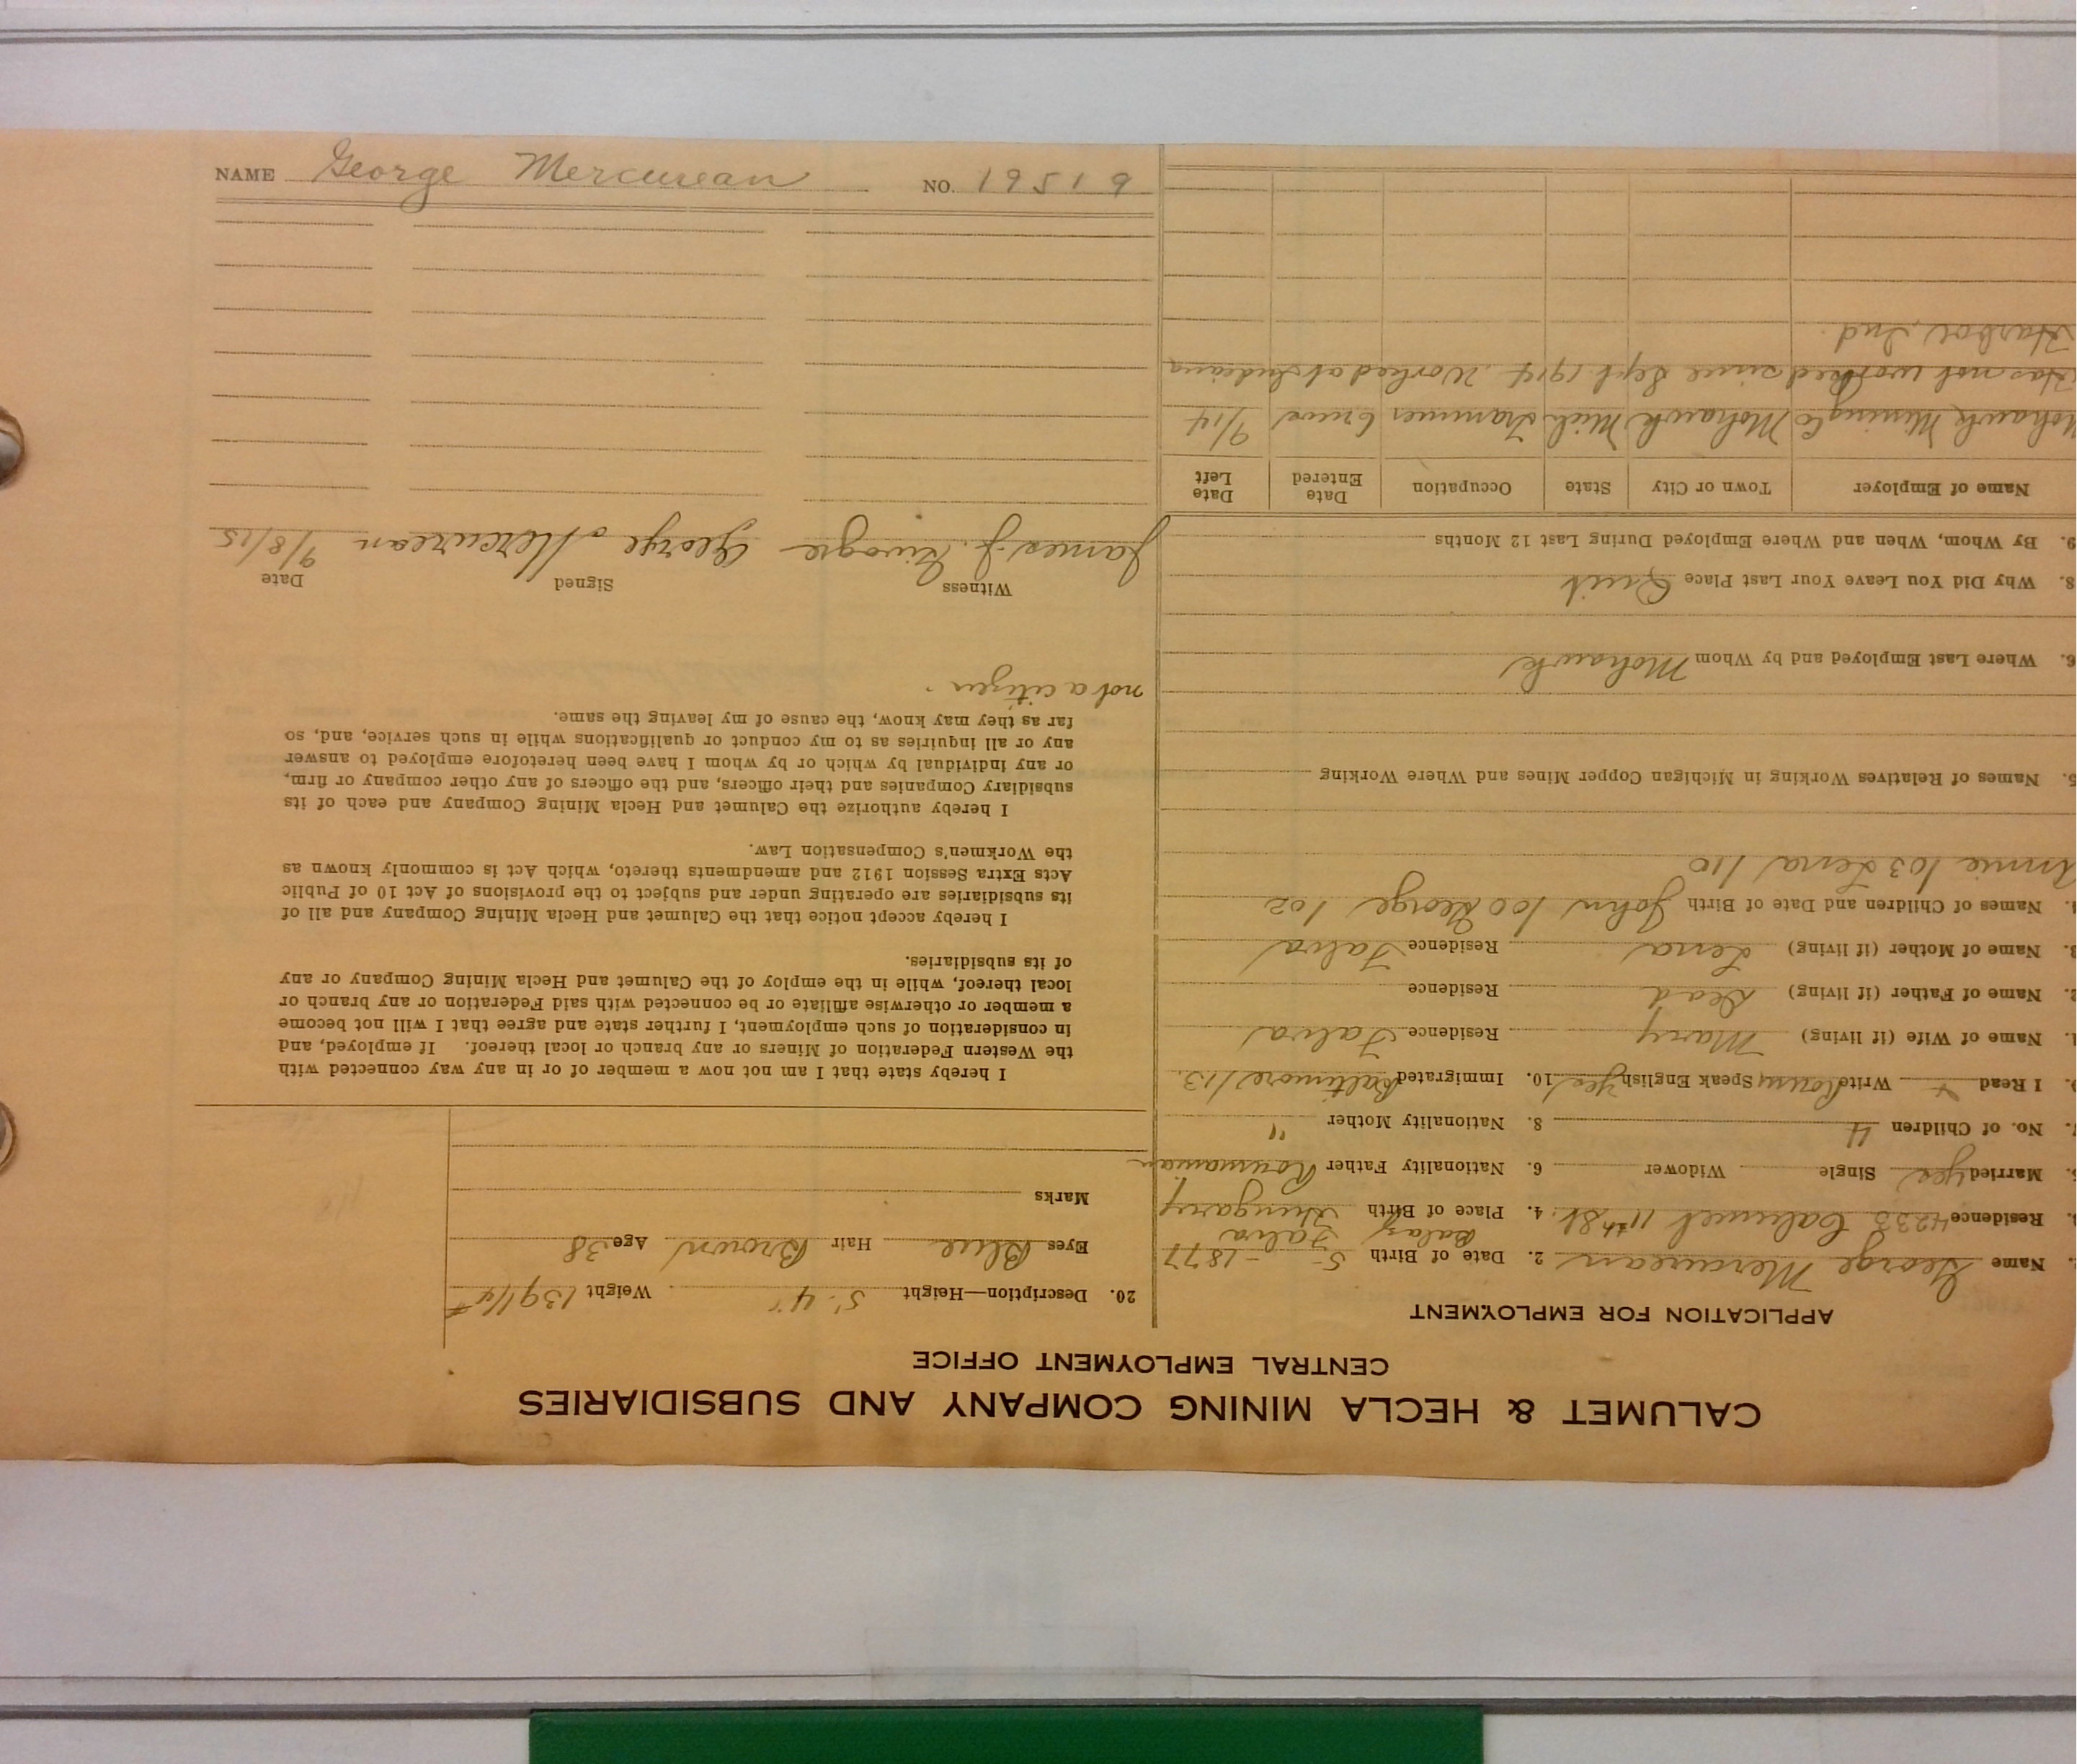 NAME George Mercurean NO. 19519
CALUMET & HECLA MINING COMPANY AND SUBSIDIARIES
CENTRAL EMPLOYMENT OFFICE
APPLICATION FOR EMPLOYMENT
Name George Mercurean 2. Date of Birth 5 - 1877
Residence 4235 Calumet 11th St. 4. Place of Birth Falva Hungary
Married yes Single Widower 6. Nationality Father Roumanian
No. of Children 4 8. Nationality Mother "
I Read Write Roum Speak English yes 10. Immigrated Baltimore / 13.
Name of Wife (if living) Mary Residence Falva
Name of Father (if living) Dead Residence
Name of Mother (if living) Lena Residence Falva
Names of Children and Date of Birth John / 00 George / 02
Annie / 03 Lena / 10
5. Names of Relatives Working in Michigan Copper Mines and Where Working
6. Where Last Employed and by Whom Mohawk
8. Why Did You Leave Your Last Place Quit
9. By Whom, When and Where Employed During Last 12 Months
Name of Employer Town or City State Occupation Date Entered Date Left
Mohawk Mining Co Mohawk Mich Trammer 9/14
Has not worked since Sept 1914. Worked at Indiana
Harbor, Ind.
20. Description—Height 5' 4" Weight 139 1/4 #
Eyes Blue Hair Brown Age 38
Marks
I hereby state that I am not now a member of or in any way connected with
the Western Federation of Miners or any branch or local thereof. If employed, and
in consideration of such employment, I further state and agree that I will not become
a member or otherwise affiliate or be connected with said Federation or any branch or
local thereof, while in the employ of the Calumet and Hecla Mining Company or any
of its subsidiaries.
I hereby accept notice that the Calumet and Hecla Mining Company and all of
its subsidiaries are operating under and subject to the provisions of Act 10 of Public
Acts Extra Session 1912 and amendments thereto, which Act is commonly known as
the Workmen's Compensation Law.
I hereby authorize the Calumet and Hecla Mining Company and each of its
subsidiary Companies and their officers, and the officers of any other company or firm,
or any individual by which or by whom I have been heretofore employed to answer
any or all inquiries as to my conduct or qualifications while in such service, and, so
far as they may know, the cause of my leaving the same.
not a citizen.
Witness Signed Date
James J. George Mercurean 9/8/15